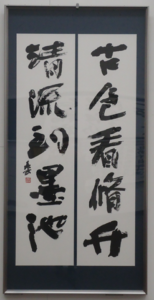 古色看脩竹
清流到墨池